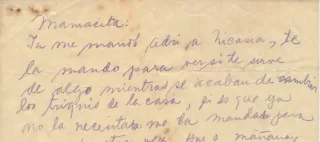 Mamacita:
Ya me mandó Adri a Nicasia, te
la mando para ver si te sirve
de algo mientras se acaban de cambiar
los triques de la casa, si es que ya
no la necesitas me la mandas para
mañana